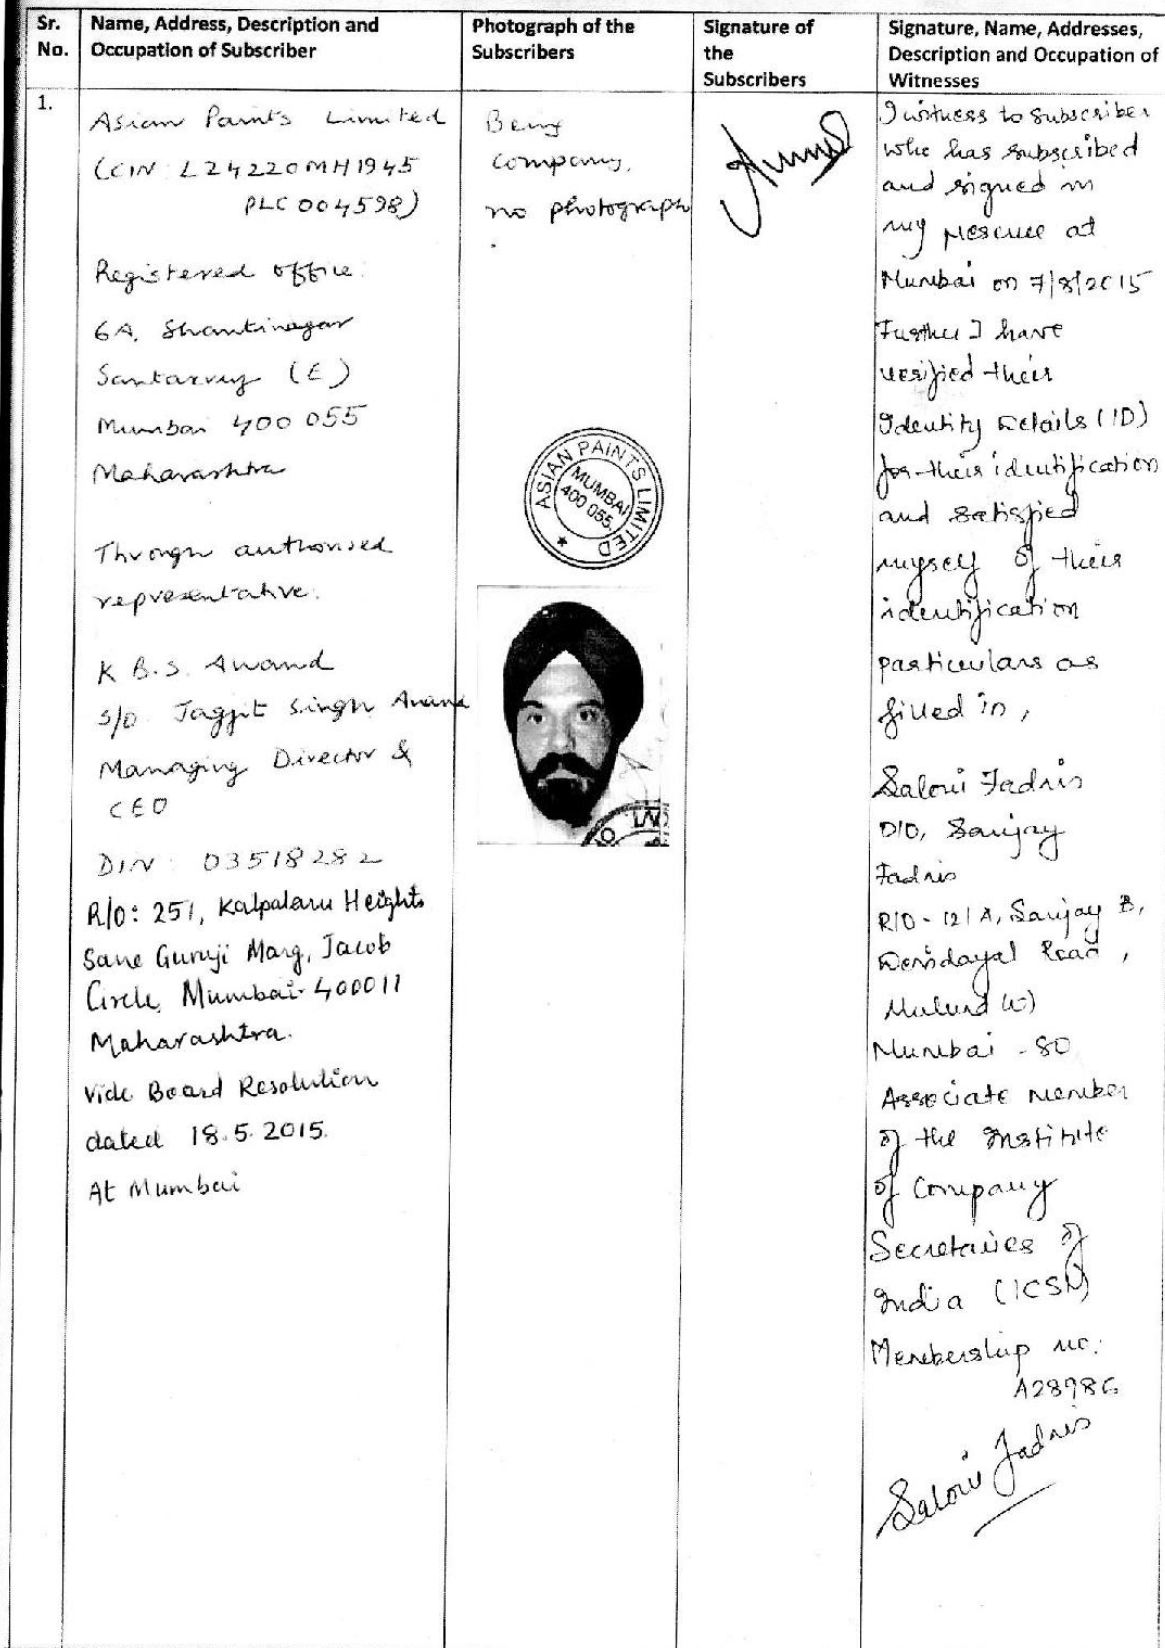 Sr. No.
Name, Address, Description and
Occupation of Subscriber
Photograph of the
Subscribers
Signature of
the
Subscribers
Signature, Name, Addresses,
Description and Occupation of
Witnesses
1.
Asian Paints Limited
(CIN: L24220MH1945
PLC004598)
Registered office:
6A, Shantinagar
Santacruz (E)
Mumbai 400 055
Maharashtra
Through authorised
representative:
K B.S. Anand
S/o Jagjit Singh Anand
Managing Director &
CEO
DIN: 03518282
R/o: 251, Kalpataru Heights
Sane Guruji Marg, Jacob
Circle, Mumbai-400011
Maharashtra.
Vide Board Resolution
dated 18.5.2015.
At Mumbai
Being
company,
no photograph
.
ASIAN PAINTS LIMITED
MUMBAI
400 055.
I witness to subscriber
who has subscribed
and signed in
my presence at
Mumbai on 7/8/2015
Further I have
verified their
Identity Details (ID)
for their identification
and satisfied
myself of their
identification
particulars as
filled in,
Saloni Fadnis
D/O, Sanjay
Fadnis
R/O - 12/A, Sanjay B,
Devidayal Road,
Mulund (W)
Mumbai - 80
Associate member
of the Institute
of Company
Secretaries of
India (ICSI)
Membership no:
A28986
Saloni Fadnis